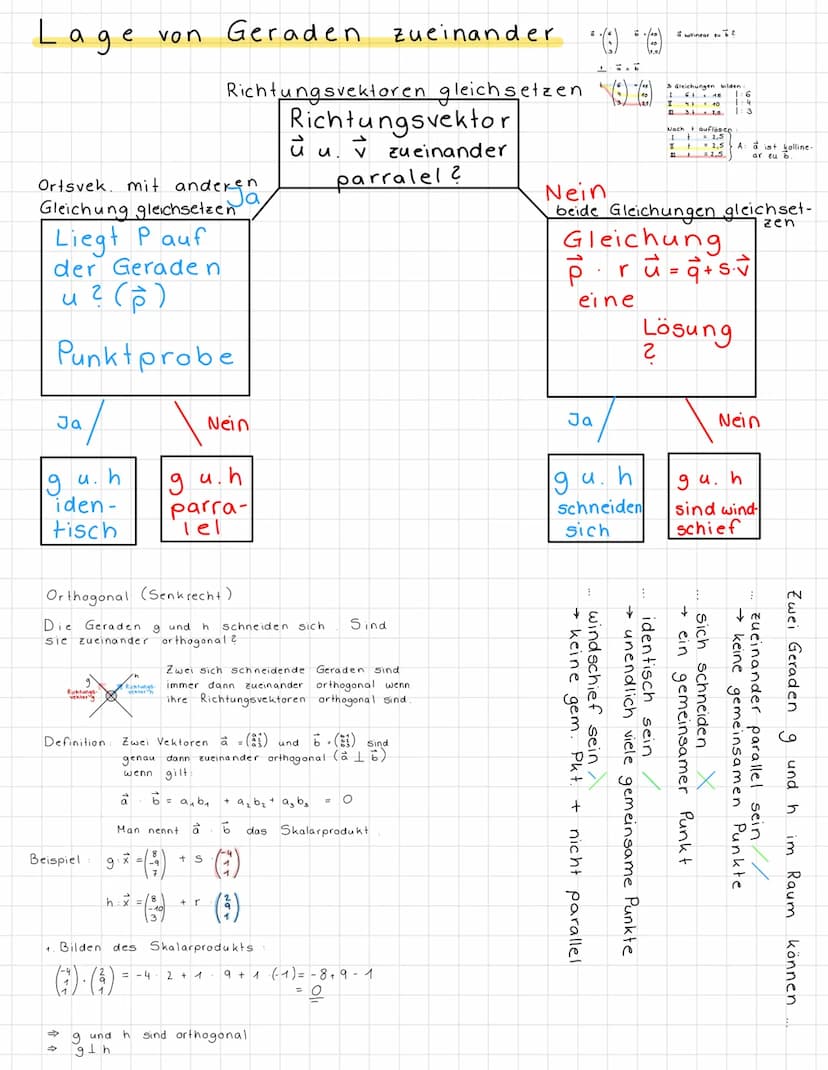 Lage von Geraden zueinander
Richtungsvektoren gleichsetzen
Richtungsvektor
u⃗ u. v⃗ zueinander
parralel?
3 Gleichungen bilden:
Nach t auflösen:
I t = 2,5
II t = 2,5
III t = 2,5
A: a⃗ ist kolline-
ar zu b⃗.
Ortsvek. mit anderen
Gleichung gleichsetzen
Ja
Liegt P auf
der Geraden
u? (p⃗)
Punktprobe
Ja
Nein
g u. h
iden-
tisch
g u. h
parra-
lel
Nein
beide Gleichungen gleichset-
zen
Gleichung
p⃗ · r u⃗ = q⃗ + s·v⃗
eine
Lösung
?
Ja
Nein
g u. h
schneiden
sich
g u. h
sind wind-
schief
Orthogonal (Senkrecht)
Die Geraden g und h schneiden sich. Sind
sie zueinander orthogonal?
g
h
Richtungs-
vektor g
Richtungs-
vektor h
Zwei sich schneidende Geraden sind
immer dann zueinander orthogonal wenn
ihre Richtungsvektoren orthogonal sind.
Definition: Zwei Vektoren a⃗ = (a1 a2 a3) und b⃗ = (b1 b2 b3) sind
genau dann zueinander orthogonal (a⃗ ⊥ b⃗)
wenn gilt:
a⃗ · b⃗ = a₁b₁ + a₂b₂ + a₃b₃ = 0
Man nennt a⃗ · b⃗ das Skalarprodukt.
Beispiel: g: x⃗ = (8 -9 7) + s · (-4 1 1)
h: x⃗ = (8 -10 3) + r (2 9 1)
1. Bilden des Skalarprodukts:
(-4 1 1) · (2 9 1) = -4 · 2 + 1 · 9 + 1 · (-1) = -8 + 9 - 1
= 0
⇒ g und h sind orthogonal
⇒ g ⊥ h
Zwei Geraden g und h im Raum können ...
... zueinander parallel sein
→ keine gemeinsamen Punkte
... sich schneiden
→ ein gemeinsamer Punkt
... identisch sein
→ unendlich viele gemeinsame Punkte
... windschief sein
→ keine gem. Pkt. + nicht parallel